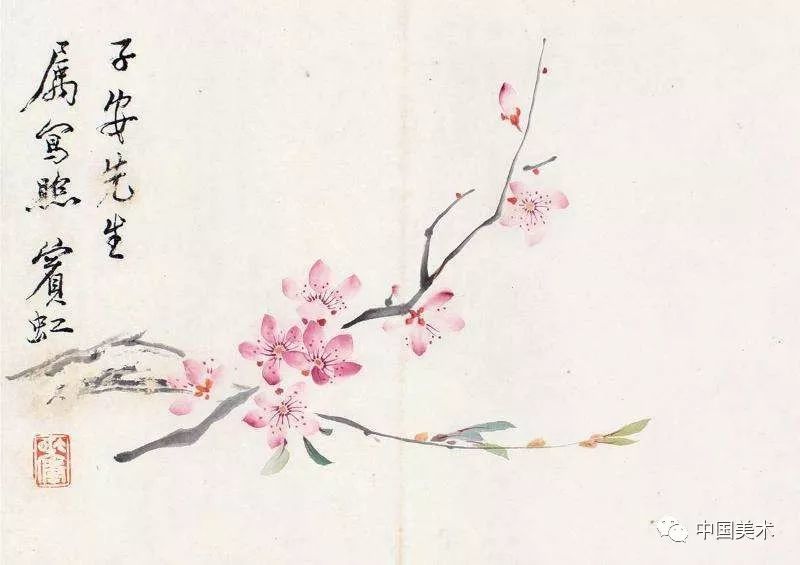 子安先生
屬寫照 賓虹
中国美术